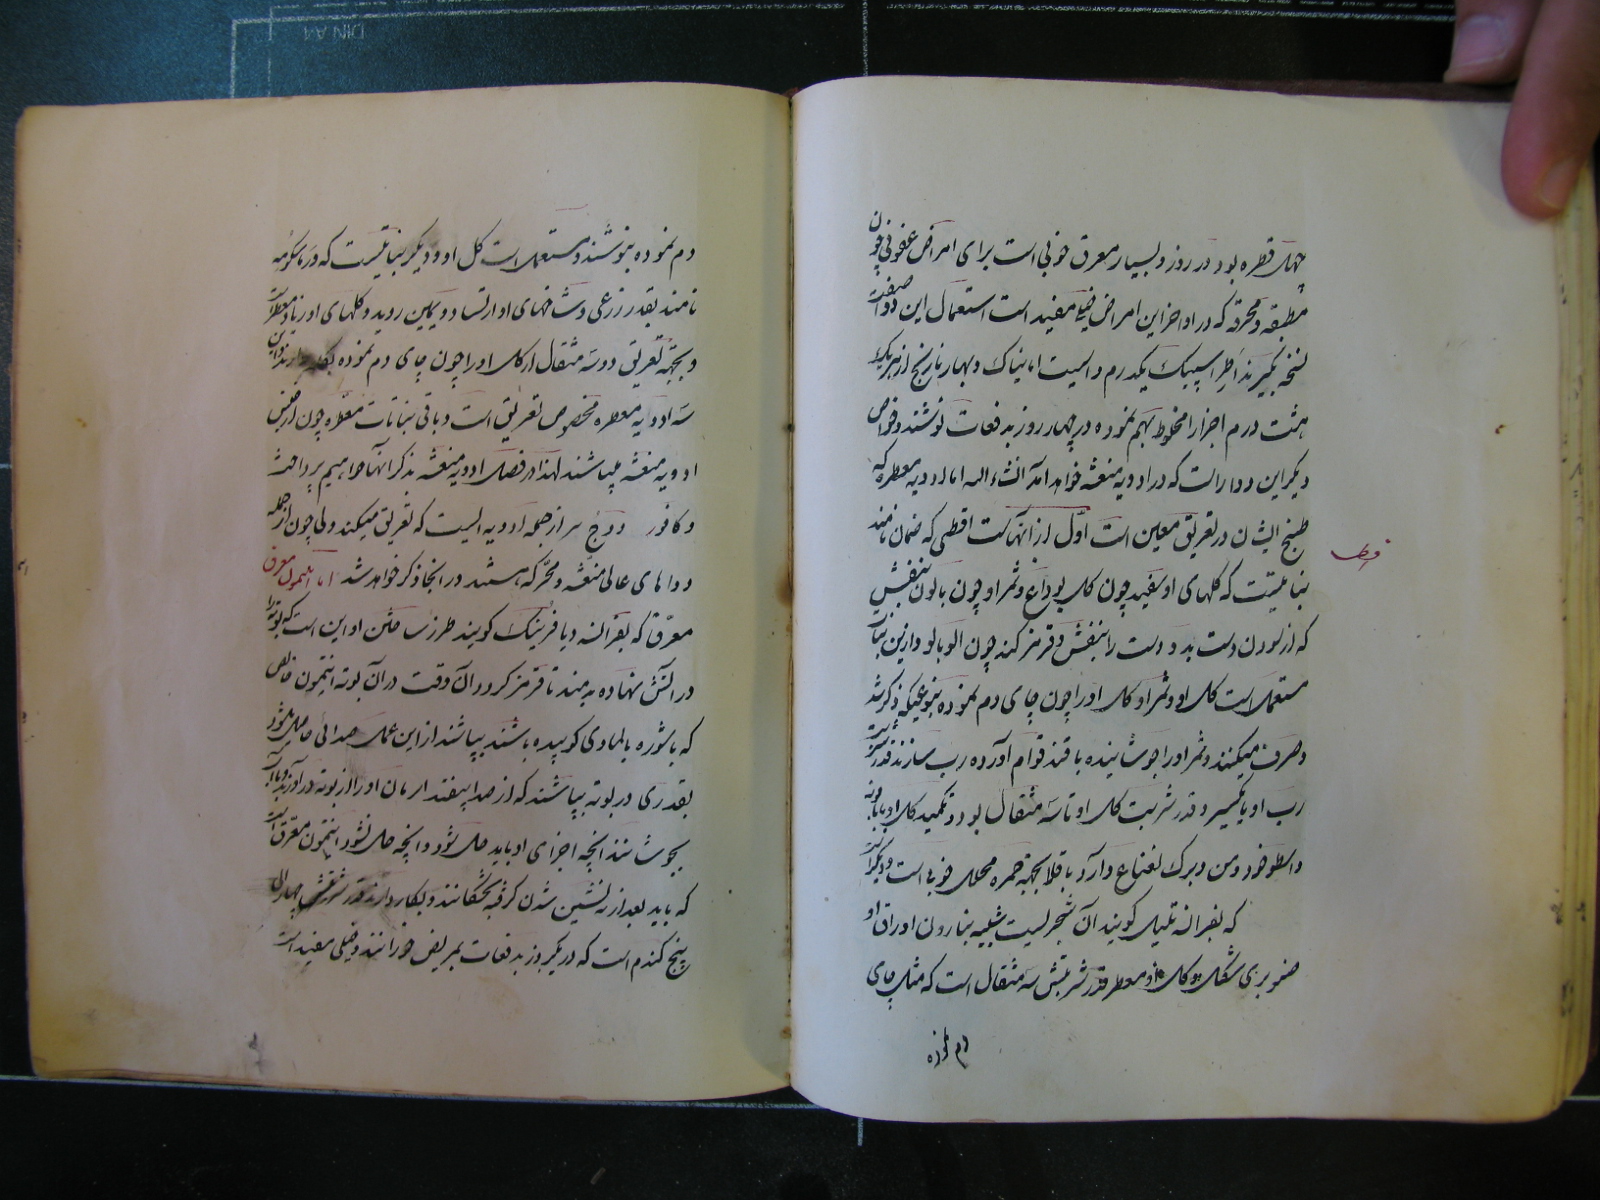 چهل قطره بود در روز و بسیار معرق خوبی است برای امراض عفونی چون
مطبقه و محرقه که در اواخر این امراض خیلی مفید است استعمال این دوا صفت
نسخه بگیرند اطر اسپیتیک یکدرم و اسیت امانیاک و بهار نارنج از هر یک
هشت درم اجزا را مخلوط بهم نموده در چهار روز بدفعات نوشند و خواص
دیگر این دوا را است که در ادویه منعشه خواهد آمد انشاء الله اما ادویه معطره که
طبخ ایشان در تعریق معین است اول از آنهاست اقطی که خمان نامند
اقطی
نباتیست که گلهای او سفید چون گل بوداغ و ثمر او چون بالون بنفش
که از سودن دست بدو دست را بنفش و قرمز کند چون آلوبالو و از این نبات
مستعمل است گل او و ثمر او گل او را چون چای دم نموده بنوعیکه ذکر شد
و صرف میکنند و ثمر او را جوشانیده با قند قوام آورده رب سازند قدر شربت
رب او یکسیر و قدر شربت گل او تا سه مثقال بود و تکمید گل او با بابونه
و اسطوخودوس و برگ نعناع و آرد باقلا بجهة حمره محلل خوبی است و دیگر
که بفرانسه تلیل گویند آن شجریست شبیه بنارون اوراق او
صنوبری شکل و گل او معطر قدر شربتش سه مثقال است که مثل چای
دم نموده
دم نموده بنوشند و مستعمل است گل او و دیگر نباتیست که
نامند بقدر ذرعی و شاخهای او ارتسا دو یمین روید و گلهای او زیاد معطر است
و بجهة تعریق دو سه مثقال از گل او را چون چای دم نموده بکار دارند و این
سه ادویه معطره مخصوص تعریق است و باقی نباتات معطره چون از جنس
ادویه منعشه میباشند لهذا در فصل ادویه منعشه بذکر آنها خواهیم پرداخت
و کافور و وج سر از جمله ادویه ایست که تعریق میکند ولی چون از جمله
دواهای عالی منعشه و محرکه هستند در آنجا ذکر خواهد شد اما انتیمون معرق
معرق که بفرانسه دیافرتیک گویند طرز ساختن او این است که بوته را
در آتش نهاده بدمند تا قرمز گردد آن وقت در آن بوته انتیمون خالص
که با شوره بالمساوی کوبیده باشند بپاشند از این عمل صدائی حاصل میشود
بقدری در بوته بپاشند که از صدا بیفتد ار مان او را از بوته در آورند و با آب
بجوشانند آنچه اجزای او باید حل شود و آنچه حل نشود انتیمون معرق است
که باید بعد از ته نشین شدن گرفته بخشکانند و بکار دارند قدر شربتش چهار الی
پنج گندم است که در یکروز بدفعات بمریض خورانند و خیلی مفید است